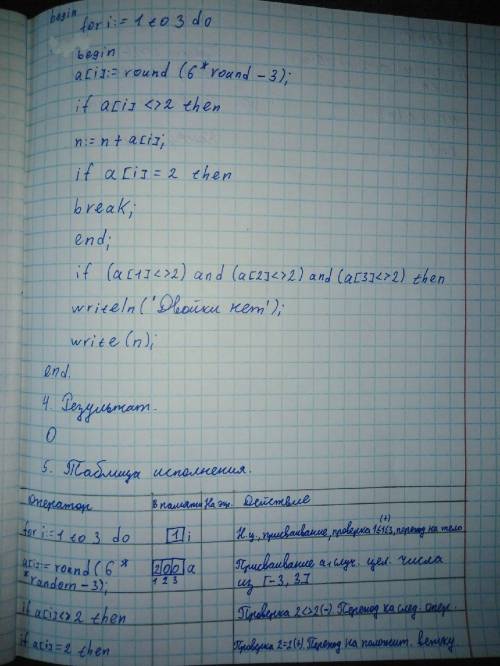 begin
for i:= 1 to 3 do
begin
a[i]:= round (6*round - 3);
if a[i] <> 2 then
n:= n + a[i];
if a[i] = 2 then
break;
end;
if (a[1]<>2) and (a[2]<>2) and (a[3]<>2) then
writeln('Двойки нет');
write(n);
end.
4. Результат.
0
5. Таблица исполнения.
Оператор В памяти На эк. Действие
for i:= 1 to 3 do 1 i Н.ц., присваивание, проверка 1≤1≤3, (+) переход на тело
a[i]:= round (6* 2 0 0 a Присваивание a случ. цел. числа
*random - 3); 1 2 3 из [-3, 3]
if a[i]<>2 then Проверка 2<>2(-). Переход на след. опер.
if a[i]=2 then Проверка 2=2(+). Переход на положит. ветку.